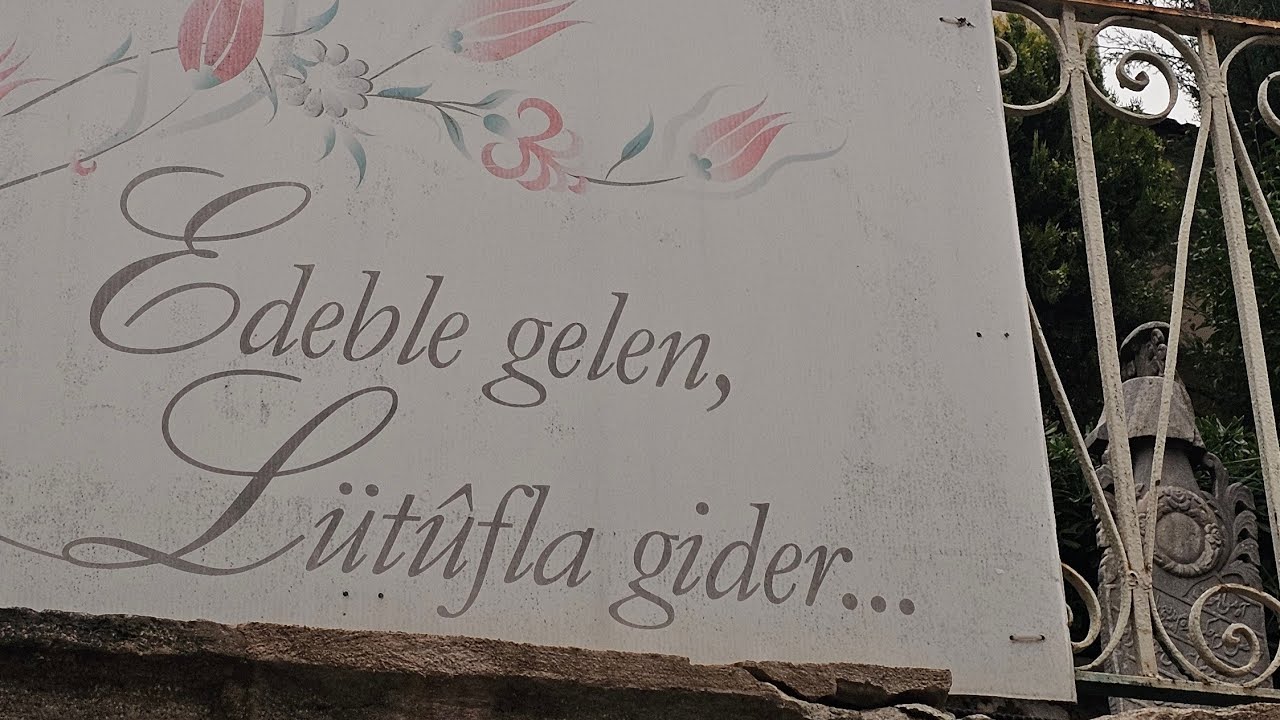 Edeble gelen,
Lütûfla gider...